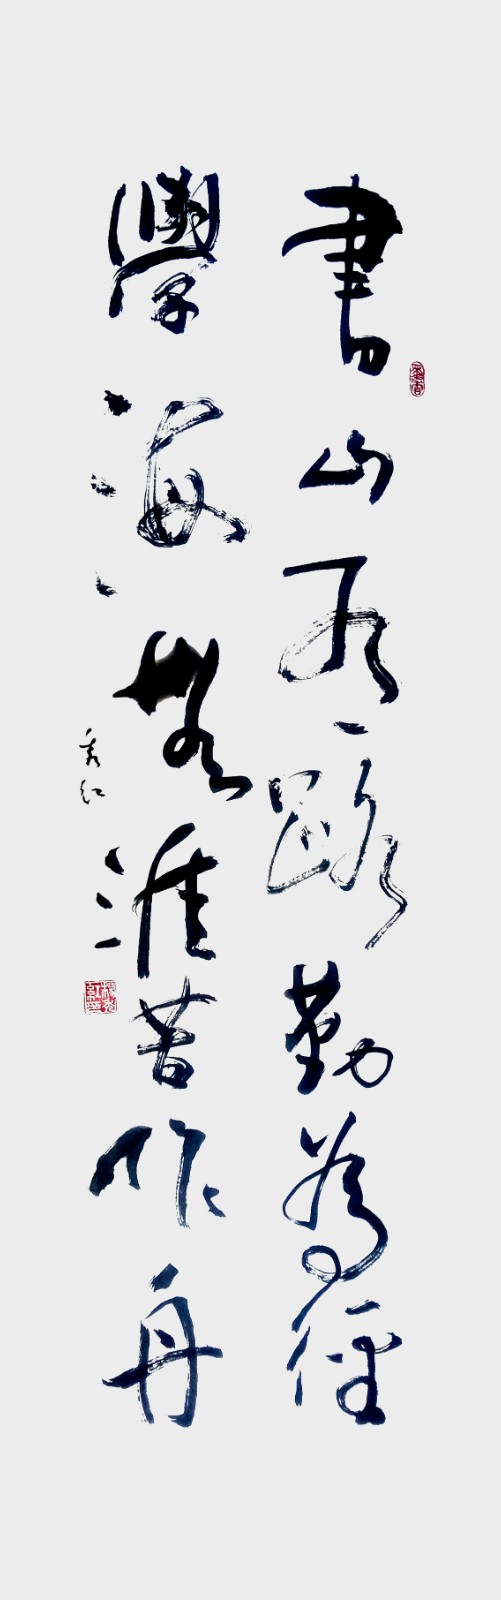 書山有路勤為徑
學海無涯苦作舟
秀红